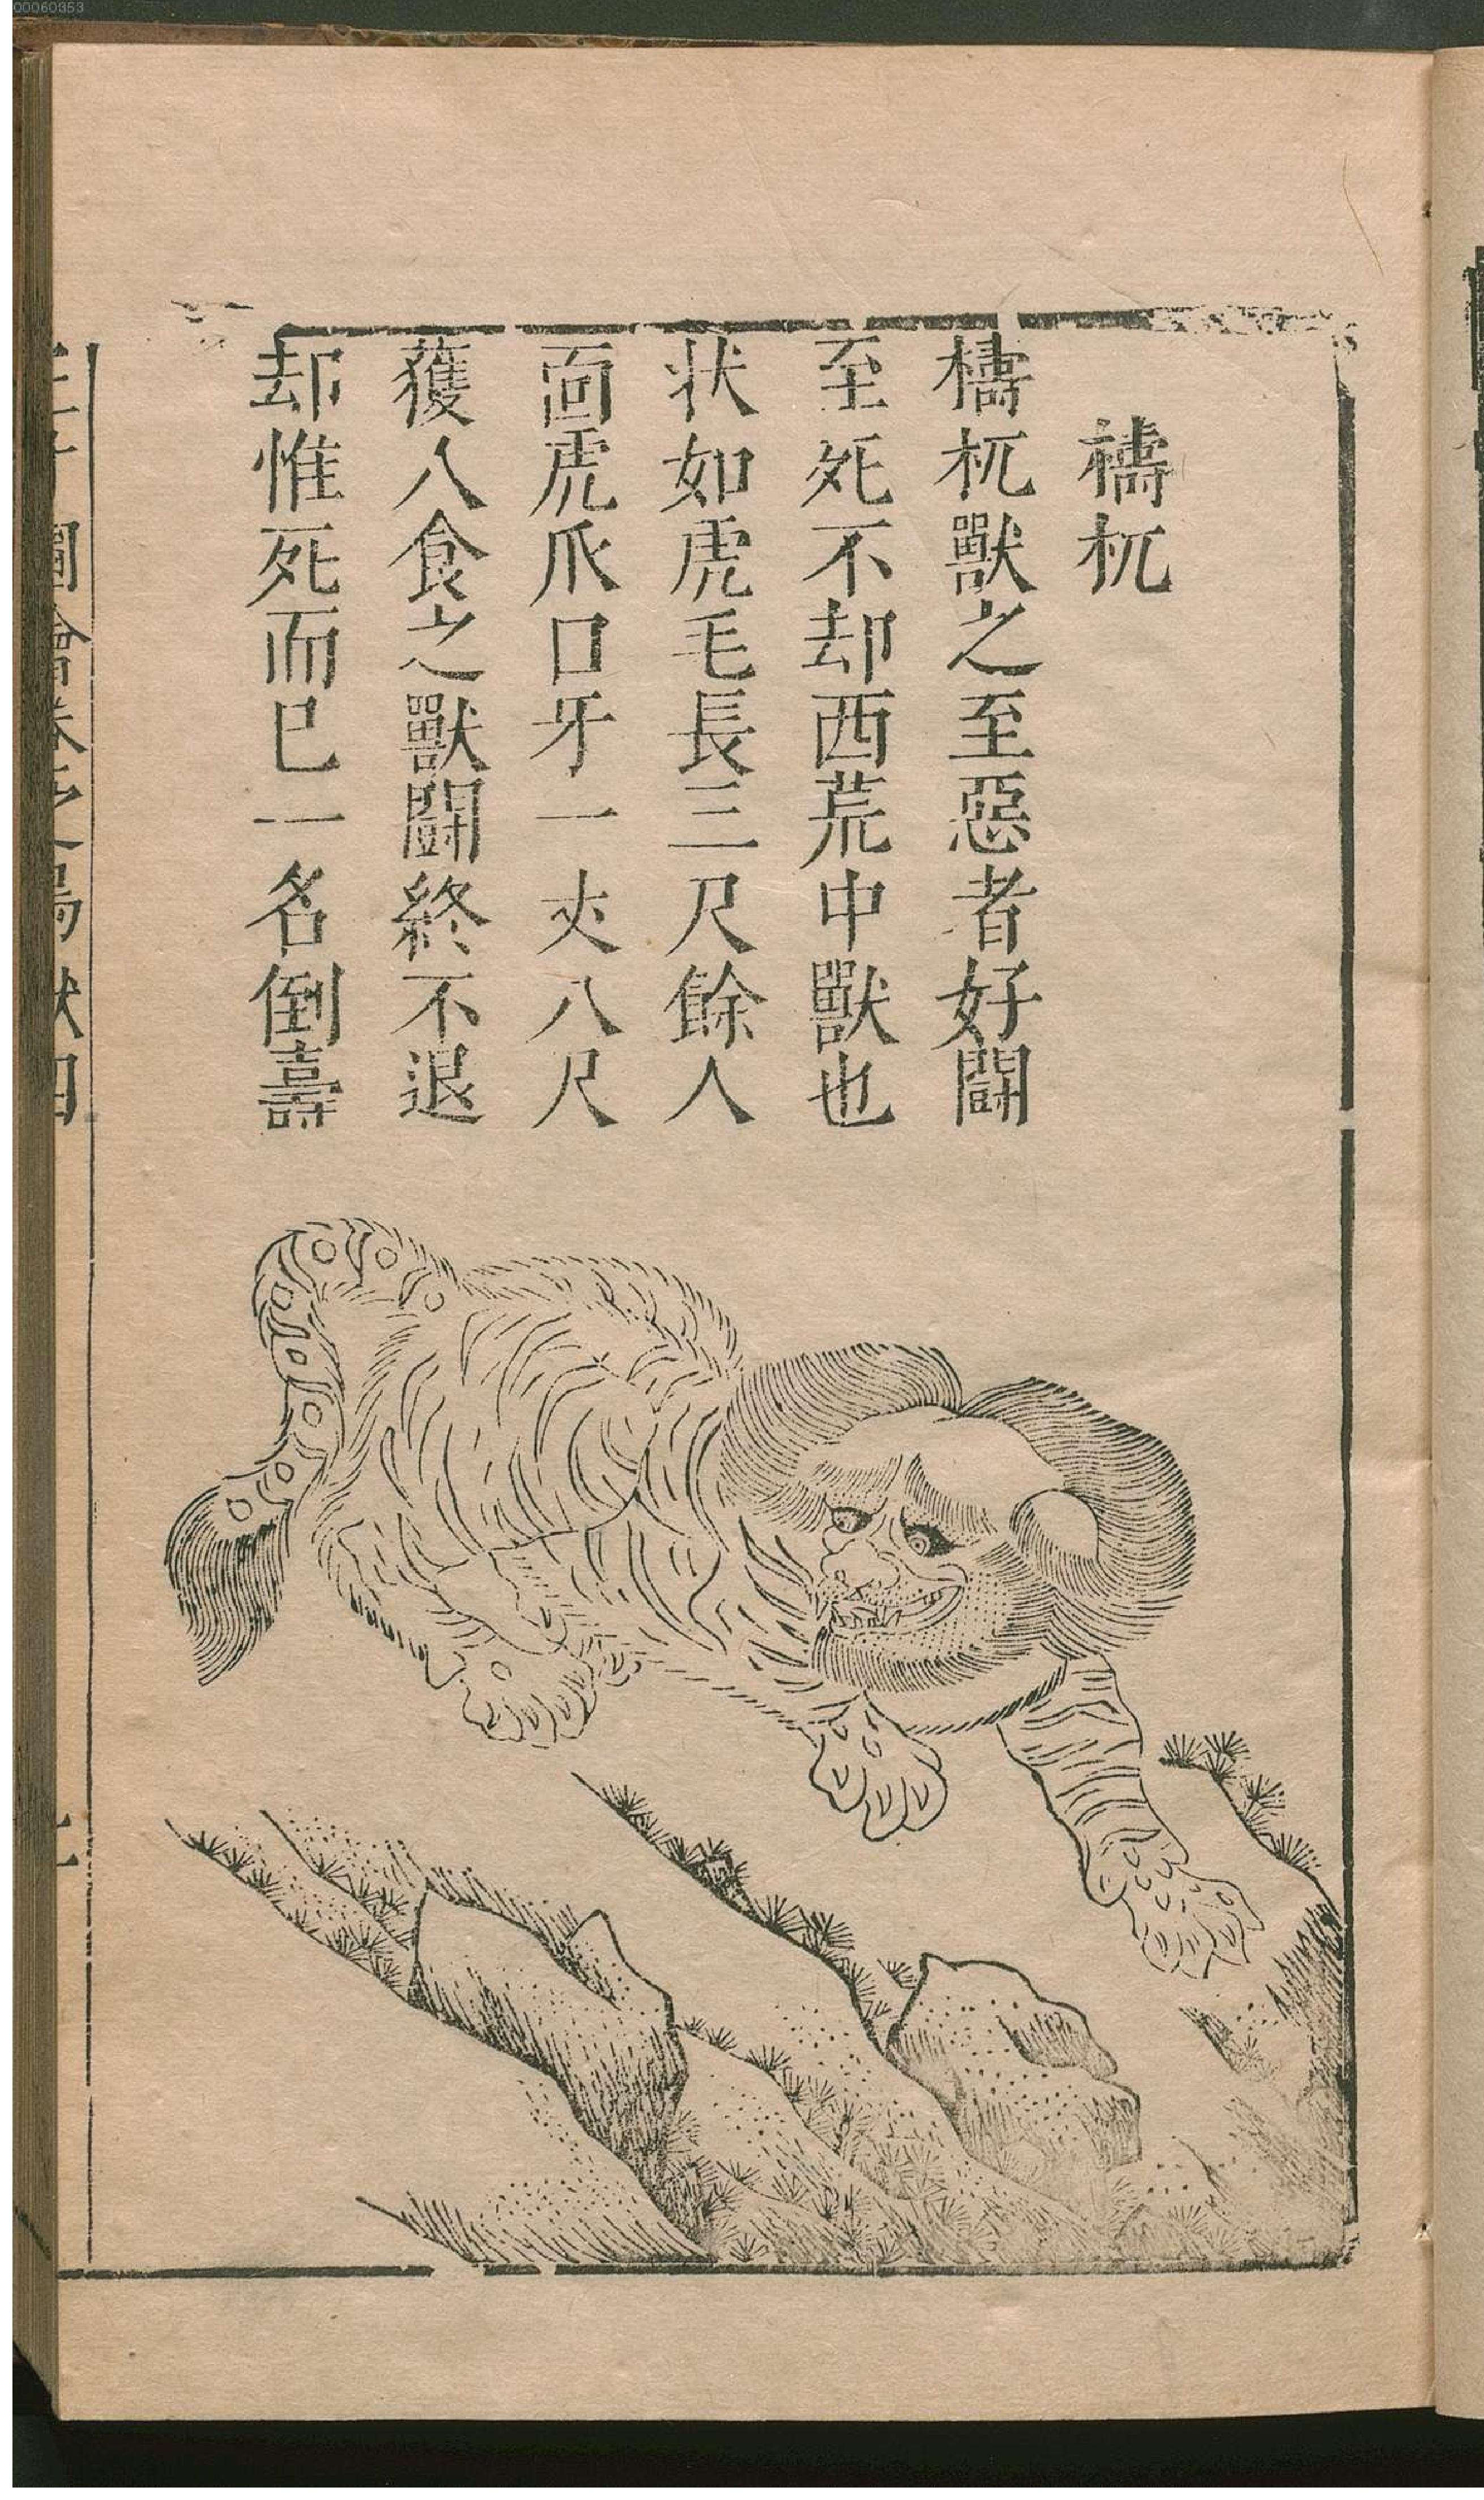 禱杌
檮杌獸之至惡者好鬪
至死不却西荒中獸也
状如虎毛長三尺餘人
面虎爪口牙一丈八尺
獲人食之獸鬪終不退
却惟死而已一名倒壽
圖會卷之鳥獸四
00060353